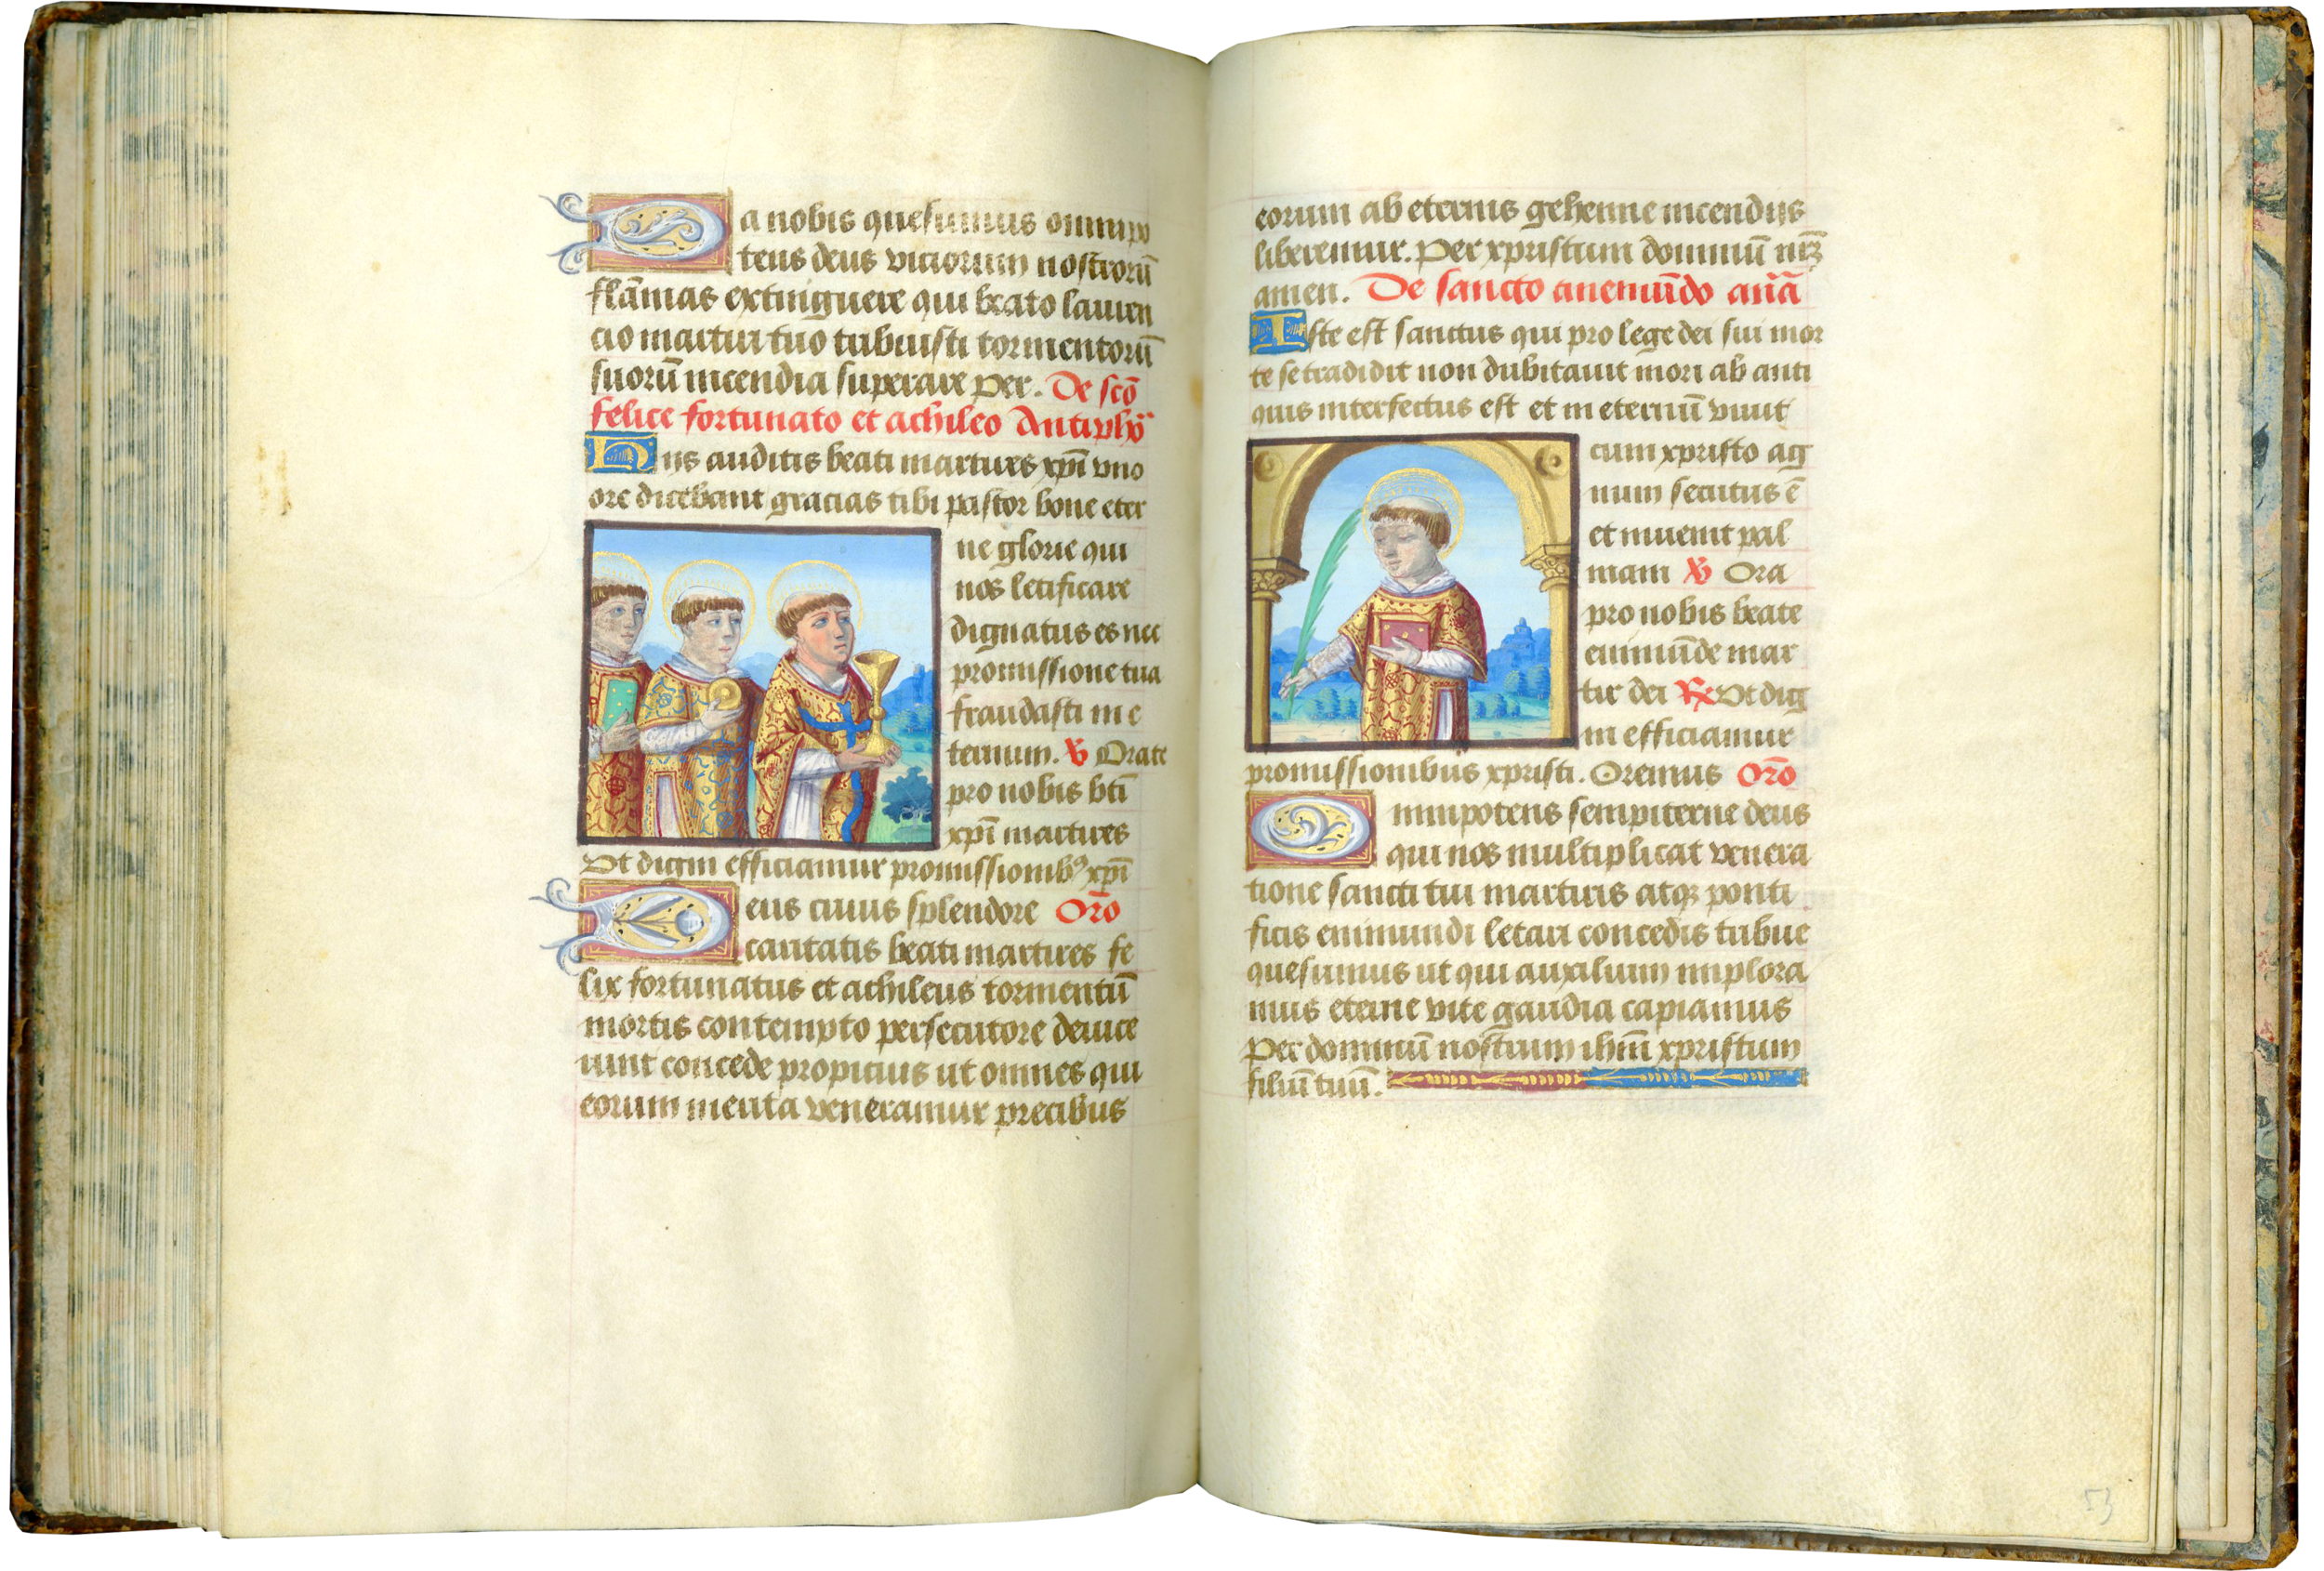 Da nobis quesumus omnipo
tens deus viciorum nostrorū
flāmas extinguere qui beato lauren
cio martiri tuo tribuisti tormentorū
suorū incendia superare per. De scō
felice fortunato et achileo Antiphō
His auditis beati martires xp̄i vno
ore dicebant gracias tibi pastor bone eter
ne glorie qui
nos letificare
dignatus es nec
promissione tua
fraudasti in e
ternum. ℣ Orate
pro nobis bt̄i
xp̄i martires
Vt digni efficiamur promissionibꝰ xp̄i
Deus cuius splendore Orō
caritatis beati martires fe
lix fortunatus et achileus tormentū
mortis contempto persecutore deuice
runt concede propicius ut omnes qui
eorum merita veneramur precibus
eorum ab eternis gehenne incendiis
liberemur. Per xpristum dominū nr̄ꝫ
amen. De sancto anemūdo an̄a
Iste est sanctus qui pro lege dei sui mor
te se tradidit non dubitauit mori ab anti
quis interfectus est et in eternū viuit
cum xpristo ag
num secutus ē
et inuenit pal
mam ℣ Ora
pro nobis beate
enimūde mar
tir dei ℟ Vt dig
ni efficiamur
promissionibus xpristi. Oremus Orō
Omnipotens sempiterne deus
qui nos multiplicat venera
tione sancti tui martiris atqꝫ ponti
ficis enimundi letari concedis tribue
quesumus ut qui auxilium implora
mus eterne vite gaudia capiamus
Per dominū nostrum ihm̄ xpristum
filiū tuū.
53